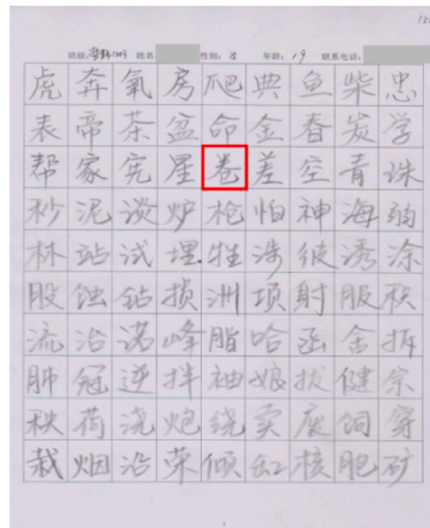 班级: 姓名 性别: 年龄: 19 联系电话:
虎奔氧房爬典鱼柴忠
表帝茶盆命金春炭学
帮家宪星卷差空青珠
秒泥淡炉枪怕神海弱
林站试埋牲涉彼诱涂
股蚀钻损洲项射服秩
流治诺峰脂哈函舍拆
肺冠逆拌袖娘拔健宗
秧荷浇炮绕卖废饲穿
栽烟沿荣倾缸核胞矿